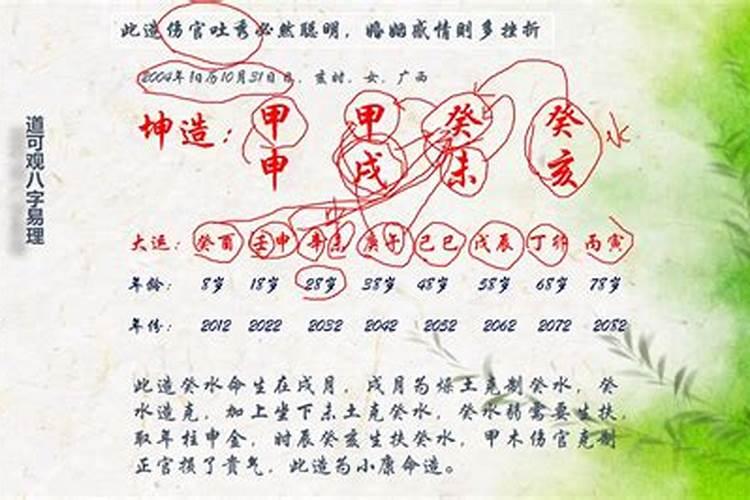 此造伤官吐秀必然聪明，婚姻感情则多挫折
2004年阳历10月31日，亥时，女，广西
道可观八字易理
坤造：甲 甲 癸 癸
申 戌 未 亥
水
大运：癸酉 壬申 辛未 庚午 己巳 戊辰 丁卯 丙寅
年龄： 8岁 18岁 28岁 38岁 48岁 58岁 68岁 78岁
年份： 2012 2022 2032 2042 2052 2062 2072 2082
此造癸水命生在戌月，戌月为燥土克制癸水，癸
水遭克，加上坐下未土克癸水，癸水弱需要生扶，
取年柱申金，时辰癸亥生扶癸水，甲木伤官克制
正官损了贵气，此造为小康命造。